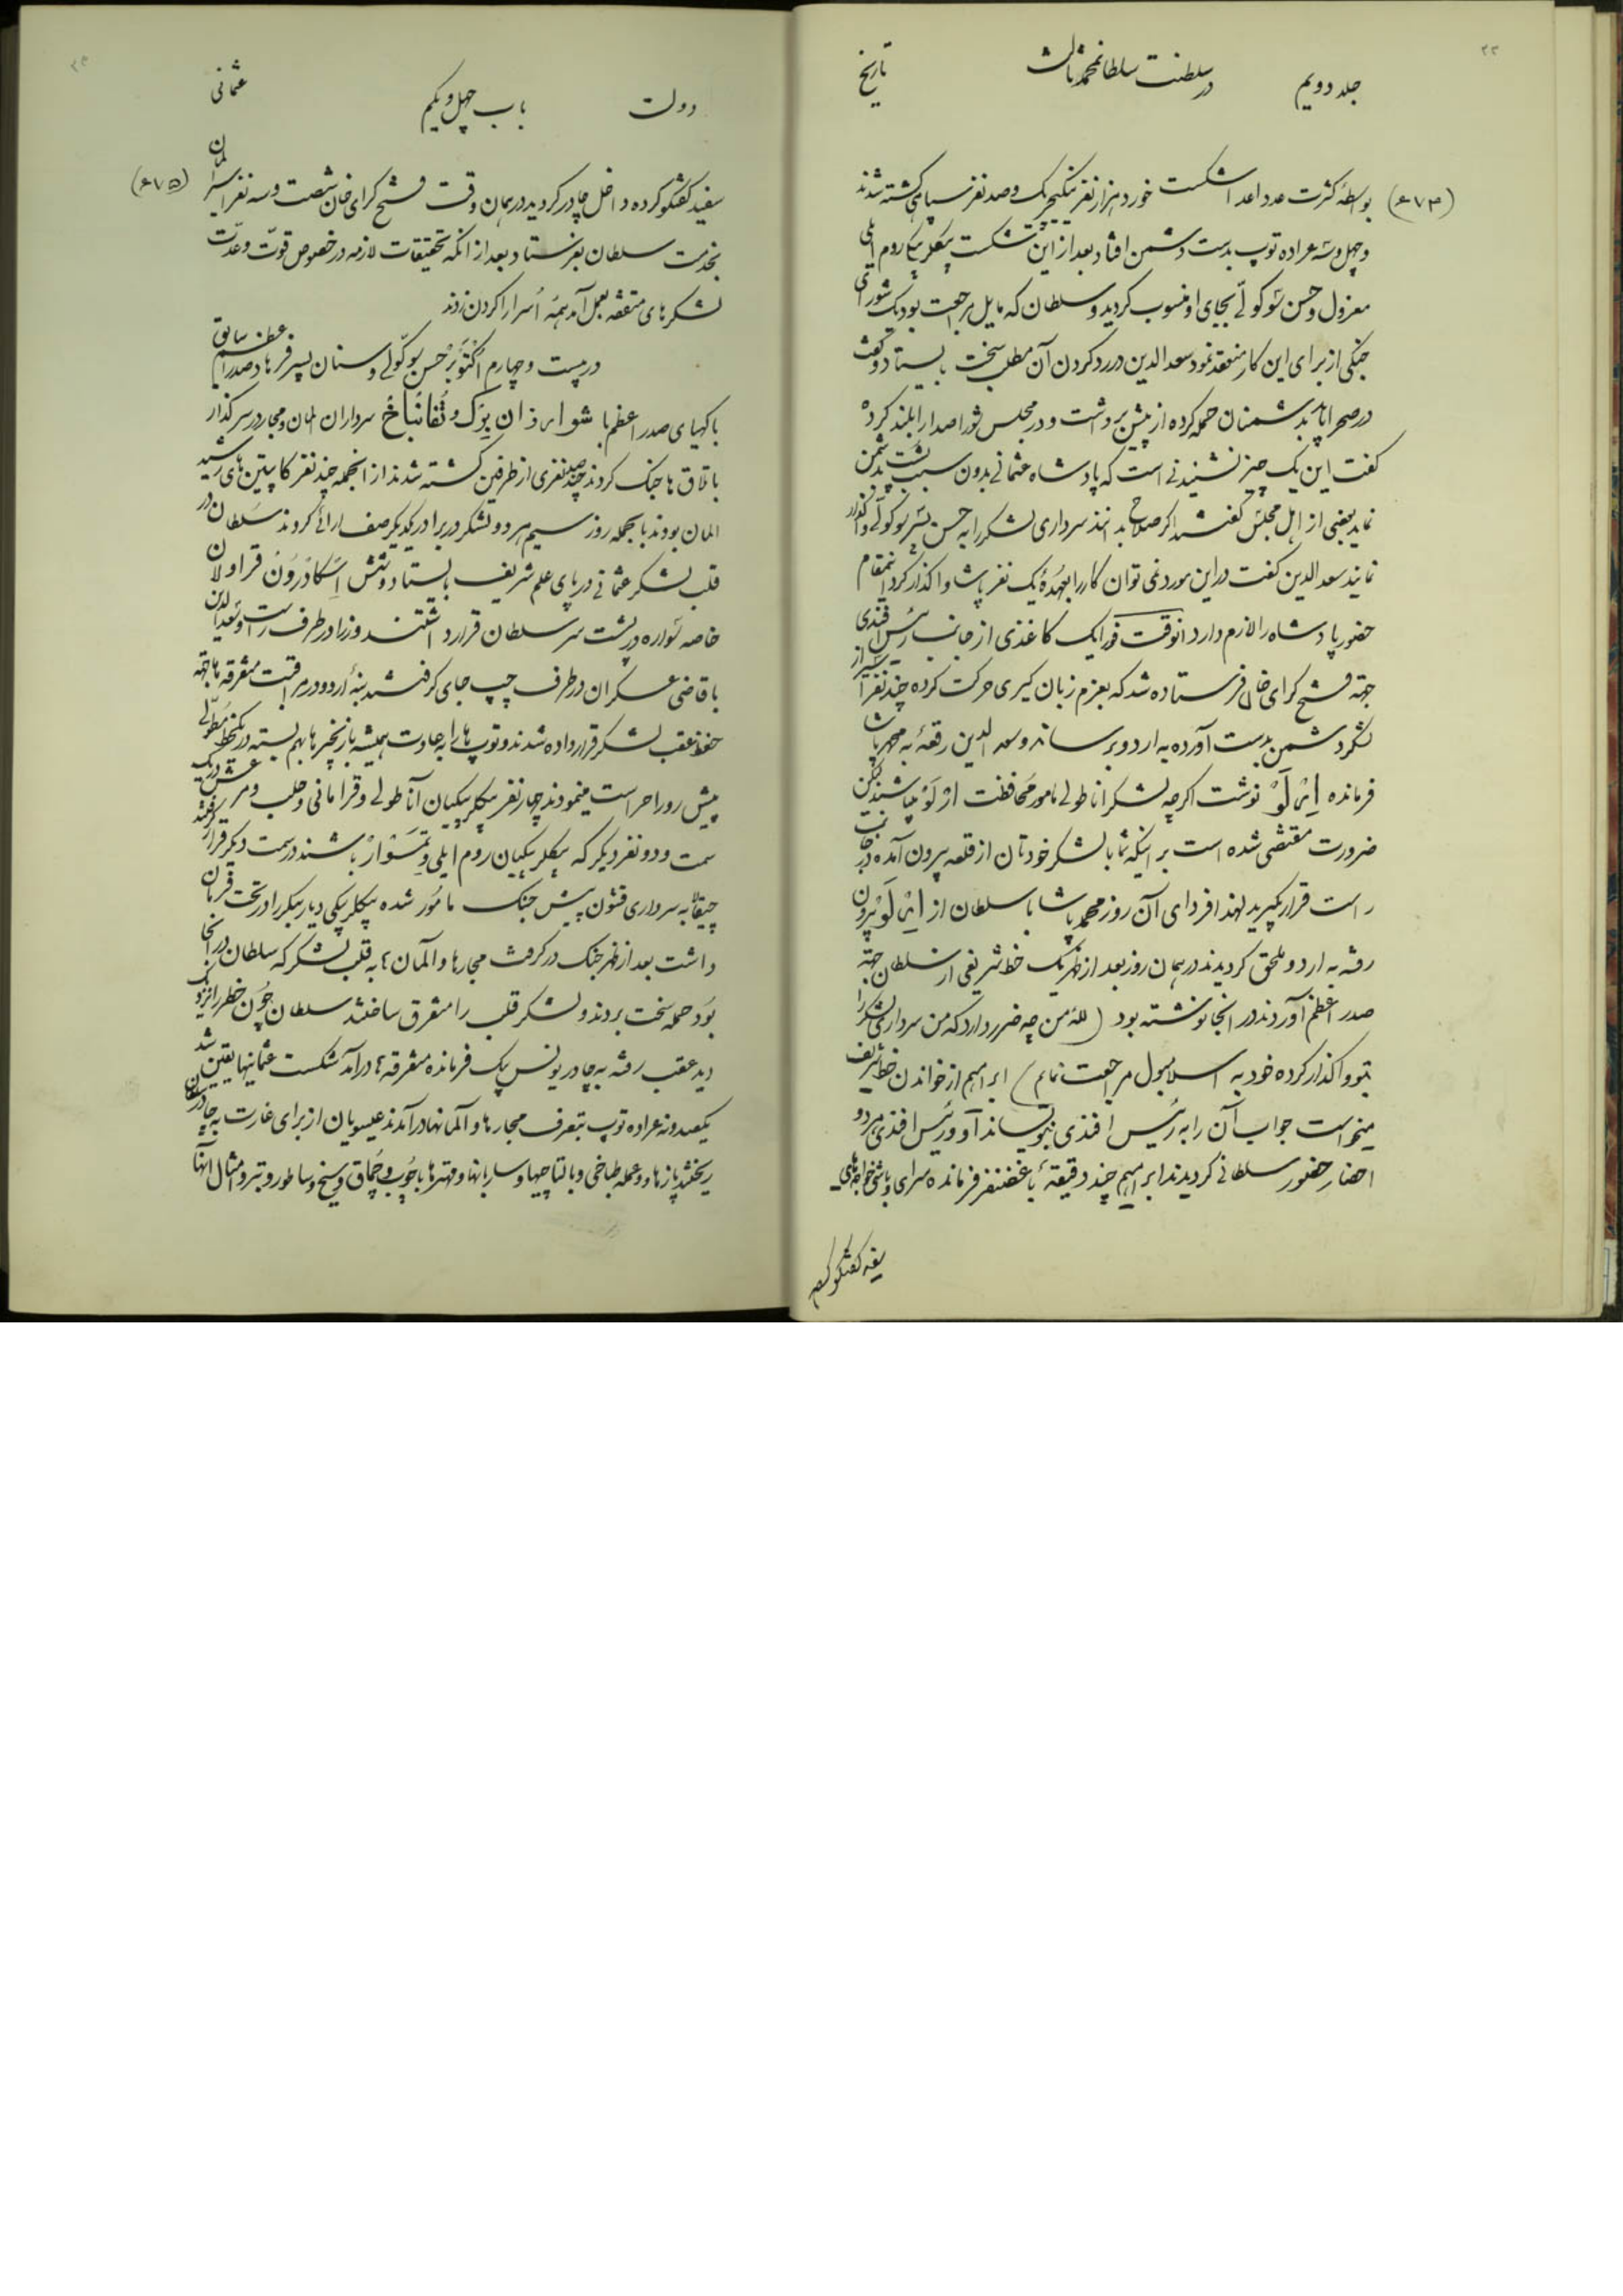 جلد دویم
در سلطنت سلطان محمد ثالث
تاریخ
(۶۷۴)
بواسطه کثرت عدد اعدا شکست خورد هزار نفر ینگیچریک و صد نفر سپاهی کشته شدند
و چهل و سه عراده توپ بدست دشمن افتاد بعد از این شکست بیکلربیکی روم ایلی
معزول و حسن سوکولّی بجای او منسوب کردید و سلطان که مایل مراجعت بود یک شورای
جنکی از برای این کار منعقد نمود سعدالدین در رد کردن آن مطلب سخت بایستاد و کفت
در صحرا باید بدشمنان حمله کرده از پیش برداشت و در مجلس شورا صدا را بلند کرده
کفت این یک چیز نشنیدنی است که پادشاه عثمانی بدون سبب پشت بدشمن
نماید بعضی از اهل مجلس کفتند اکر صلاح بدانند سرداری لشکر را به حسن سوکولّی واکذار
نمایند سعدالدین کفت در این مورد نمی توان کار را بعهدهٔ یک نفر پاشا واکذار کرد این مقام
حضور پادشاه را لازم دارد انوقت فورا یک کاغذی از جانب رئیس افندی
جهة فتح کرای خان فرستاده شد که بعزم زبان کیری حرکت کرده چند نفر اسیر از
لشکر دشمن بدست آورده به اردو برساند و سعدالدین رقعهٔ به محمد پاشا
فرمانده ارلو نوشت اکرچه لشکر اناطولی مامور محافظت ارلو میباشند لیکن
ضرورت مقتضی شده است بر اینکه شما با لشکر خودتان از قلعه بیرون آمده در جانب
راست قرار بکیرید لهذا فردای آن روز محمد پاشا با سلطان از ارلو بیرون
رفته به اردو ملحق کردیدند در همان روز بعد از ظهر یک خط شریفی از سلطان جهة
صدر اعظم آوردند در انجا نوشته بود (للهٔ من چه ضرر دارد که من سرداری لشکر را
بتو واکذار کرده خود به اسلامبول مراجعت نمایم) ابراهیم از خواندن خط شریف
میخواست جواب آن را به رئیس افندی بنویساند او و رئیس افندی هر دو
احضار حضور سلطانی کردیدند ابراهیم چند دقیقهٔ با غضنفر فرمانده سرای و باشی خواجه های
سفید کفتکو کرده
دولت
باب چهل و یکم
عثمانی
(۶۷۵)
سفید کفتکو کرده داخل چادر کردید در همان وقت فتح کرای خان شصت و سه نفر اسیر المان
بخدمت سلطان بفرستاد بعد از انکه تحقیقات لازمه در خصوص قوّت و عدّت
لشکرهای متفقه بعمل آمد همهٔ اُسرا را کردن زدند
در بیست و چهارم اُکتوبر حسن سوکولّی و سنان پسر فرهاد صدر اعظم سابق
با کهیای صدر اعظم با شوابرذان بِرک و تُفانباخ سرداران المان و مجار در سر کذار
باتلاق ها جنک کردند چند صد نفری از طرفین کشته شدند از انجمله چند نفر کاپیتن های رشید
المان بودند بالجمله روز سیم هر دو لشکر در برابر یکدیکر صف ارائی کردند سلطان در
قلب لشکر عثمانی در پای علم شریف بایستاد و شش اسکادرون قراولان
خاصه سواره در پشت سر سلطان قرار داشتند وزرا در طرف راست او و سعدالدین
با قاضی عسکران در طرف چپ جای کرفتند بنهٔ اردو در مراقبت متفرقه ها جهة
حفظ عقب لشکر قرار داده شدند و توپ ها را به عادت همیشه با زنجیر ها بهم بسته در یک خط مطوّلی
پیش رو را حراست مینمودند چهار نفر بیکلربیکیان آناطولی و قرامانی و حلب و مرعش در یک
سمت و دو نفر دیکر که بیکلربیکیان روم ایلی و تمسوار باشند در سمت دیکر قرار کرفتند
چیقاله به سرداری قشون پیش جنک مامُور شده بیکلربیکی دیاربیکر را در تحت فرمان
داشت بعد از ظهر جنک در کرفت مجارها و المان ها به قلب لشکر که سلطان در انجا
بود حمله سخت بردند و لشکر قلب را متفرق ساختند سلطان چون خطر را نزدیک
دید عقب رفته به چادر یونس بیک فرمانده متفرقه ها درآمد شکست عثمانیها یقین شد
یکصد و نه عراده توپ بتصرف مجارها و آلمانها درآمدند عیسویان از برای غارت به چادر سلطان
ریختند پازها و عمله طباخی و بالتاچیها و ساربانها و مهترها با چوب و چماق و سیخ و ساطور و تبر و امثال اینها